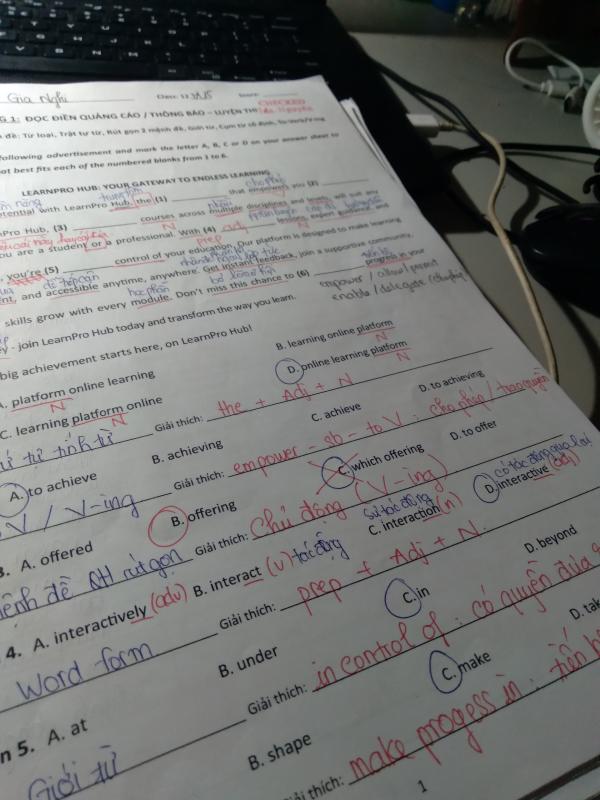 Gia Nghi Class: 12 Score:
G 1: ĐỌC ĐIỀN QUẢNG CÁO / THÔNG BÁO – LUYỆN THI CHECKED
đề: Từ loại, Trật tự từ, Rút gọn mệnh đề, Giới từ, Cụm từ cố định, To-verb/V-ing
following advertisement and mark the letter A, B, C or D on your answer sheet to
at best fits each of the numbered blanks from 1 to 6.
LEARNPRO HUB: YOUR GATEWAY TO ENDLESS LEARNING
cho phép
otential with LearnPro Hub, the (1) that empowers you (2)
nPro Hub, (3) courses across multiple disciplines and levels will suit any
N prep adj N
you are a student or a professional. With (4) lessons, expert guidance and
, you're (5) control of your education. Our platform is designed to make learning
ent, and accessible anytime, anywhere. Get instant feedback, join a supportive community,
học phần bỏ lỡ
skills grow with every module. Don't miss this chance to (6) progress in your
empower / allow / permit
enable / delegate
ey - join LearnPro Hub today and transform the way you learn.
big achievement starts here, on LearnPro Hub!
A. platform online learning B. learning online platform
N N
C. learning platform online D. online learning platform
N N
tự từ tính từ Giải thích: the + Adj + N
A. to achieve B. achieving C. achieve D. to achieving
V / V-ing Giải thích: empower - sb - to V : cho phép / trao quyền
3. A. offered B. offering C. which offering D. to offer
mệnh đề QH rút gọn Giải thích: chủ động (V-ing)
tác động có tác động qua lại
4. A. interactively (adv) B. interact (v) tác động C. interaction (n) D. interactive (adj)
Word form Giải thích: prep + Adj + N
n 5. A. at B. under C. in D. beyond
Giới từ Giải thích: in control of : có quyền
B. shape C. make D. tak
iải thích: make progess in : tiến
1